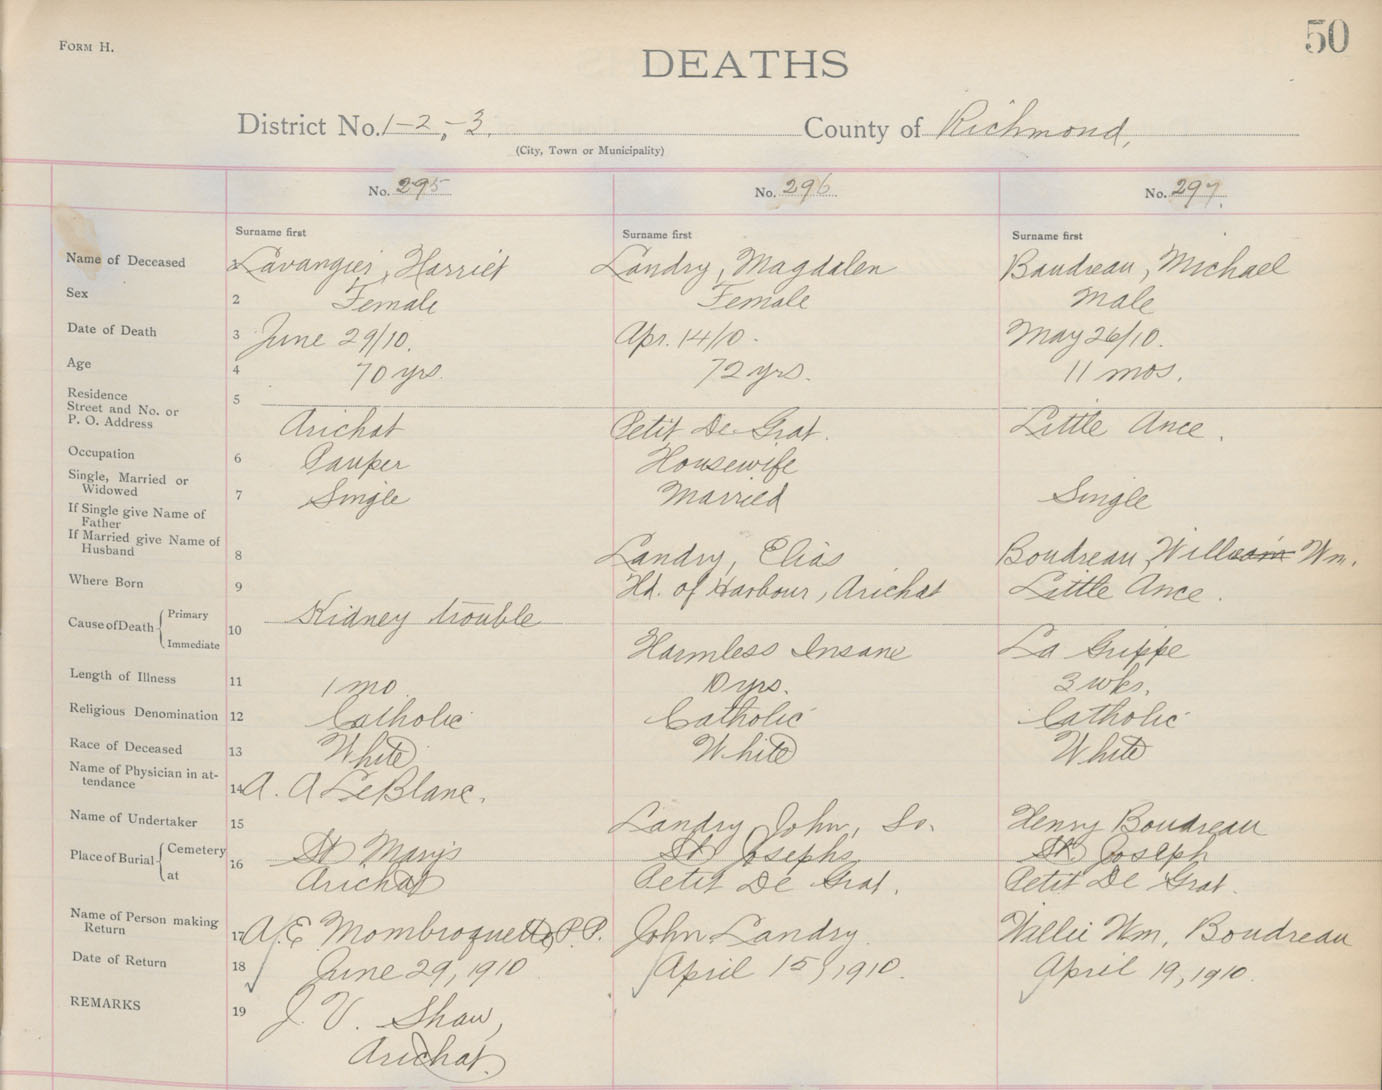 50
FORM H.
DEATHS
District No. 1-2,-3. County of Richmond,
(City, Town or Municipality)
No. 295 No. 296 No. 297.
Surname first Surname first Surname first
Name of Deceased 1 Lavangier, Harriet Landry, Magdalen Boudreau, Michael
Sex 2 Female Female Male
Date of Death 3 June 29/10. Apr. 14/10. May 26/10.
Age 4 70 yrs. 72 yrs. 11 mos.
Residence
Street and No. or 5
P. O. Address Arichat Petit De Grat. Little Ance.
Occupation 6 Pauper Housewife
Single, Married or
Widowed 7 Single Married Single
If Single give Name of
Father
If Married give Name of
Husband 8 Landry, Elias Boudreau, William Wm.
Where Born 9 Hd. of Harbour, Arichat Little Ance.
Cause of Death Primary Kidney trouble
Immediate 10 Harmless Insane La Grippe
Length of Illness 11 1 mo. 10 yrs. 3 wks.
Religious Denomination 12 Catholic Catholic Catholic
Race of Deceased 13 White White White
Name of Physician in at-
tendance 14 A. A LeBlanc.
Name of Undertaker 15 Landry John, So. Henry Boudreau
Place of Burial Cemetery 16 St Mary's St Josephs St. Joseph
at Arichat Petit De Grat. Petit De Grat.
Name of Person making
Return 17 A. E Mombroquette, P.P. John Landry. Willie Wm. Boudreau
Date of Return 18 June 29, 1910 April 15, 1910. April 19, 1910.
REMARKS 19 J. V. Shaw,
Arichat.